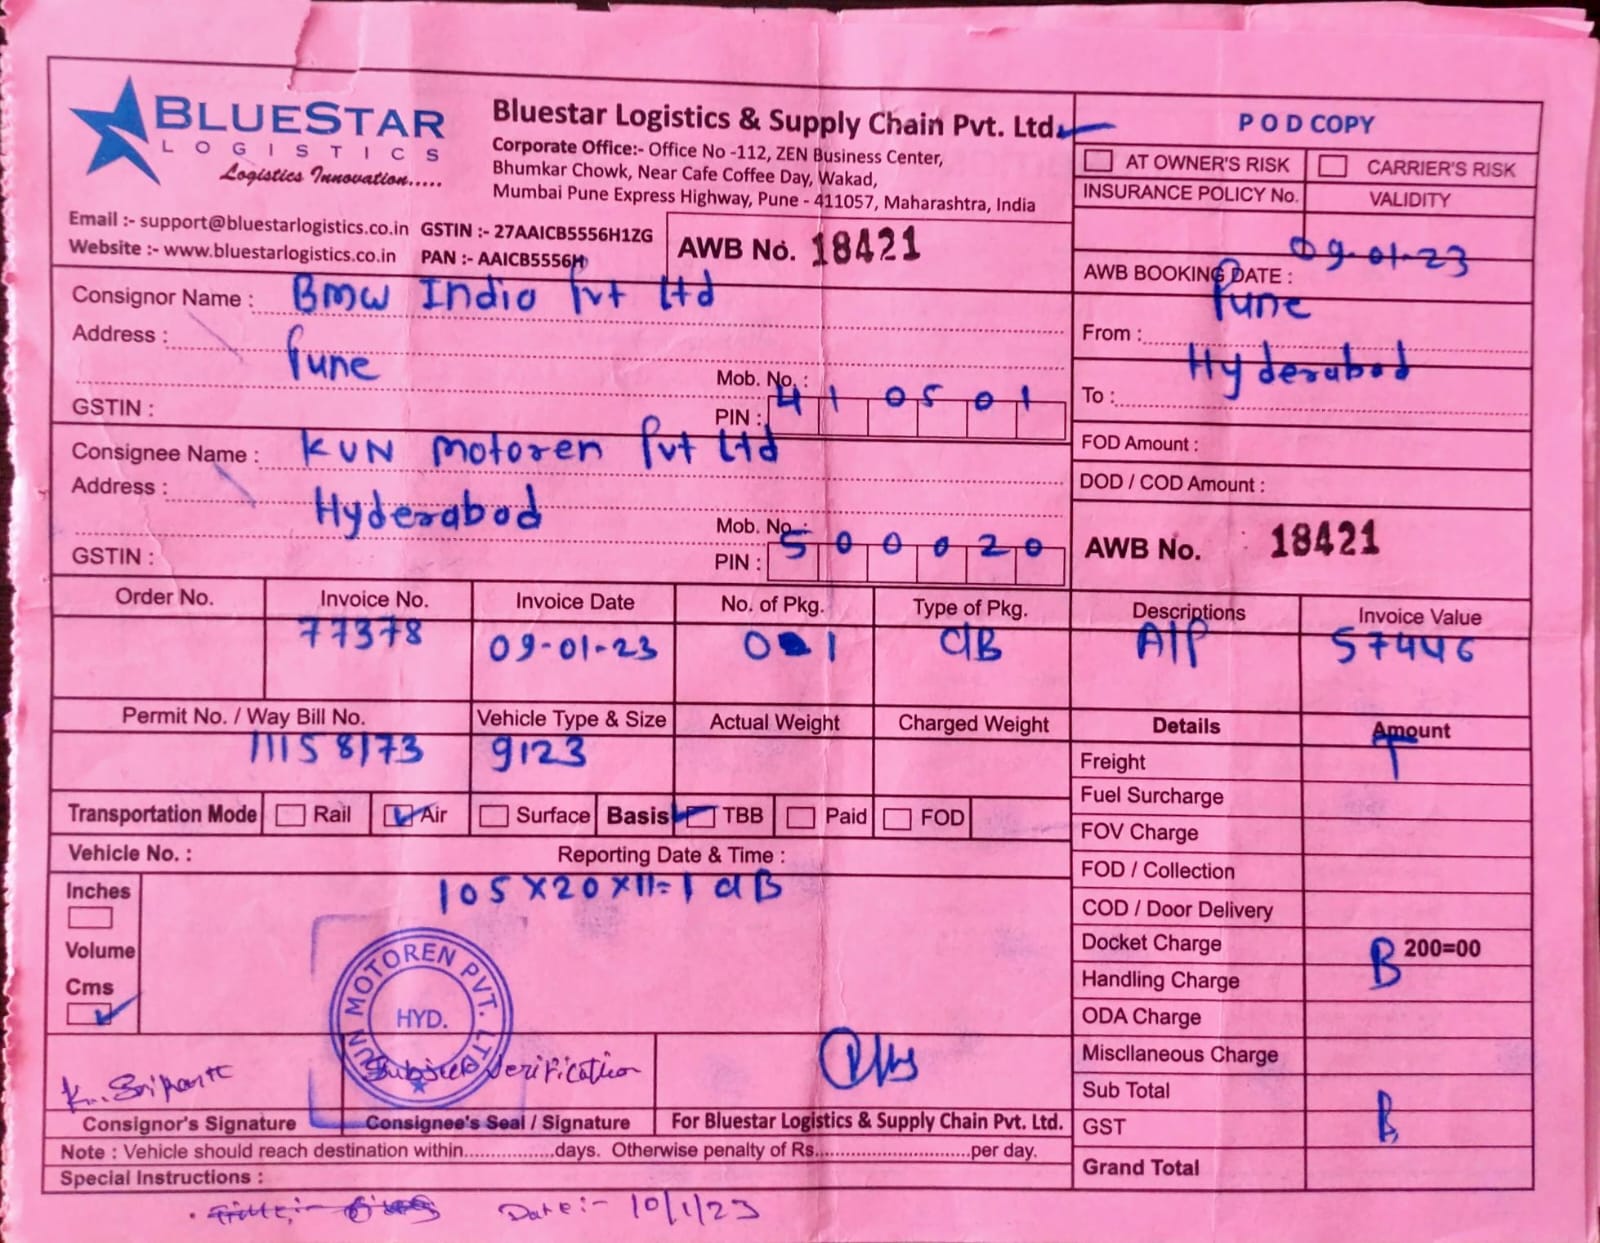 BLUESTAR
LOGISTICS
Logistics Innovation.....
Bluestar Logistics & Supply Chain Pvt. Ltd.
Corporate Office:- Office No -112, ZEN Business Center,
Bhumkar Chowk, Near Cafe Coffee Day, Wakad,
Mumbai Pune Express Highway, Pune - 411057, Maharashtra, India
Email :- support@bluestarlogistics.co.in GSTIN :- 27AAICB5556H1ZG
Website :- www.bluestarlogistics.co.in PAN :- AAICB5556H
AWB No. 18421
POD COPY
AT OWNER'S RISK CARRIER'S RISK
INSURANCE POLICY No. VALIDITY
AWB BOOKING DATE : 09-01-23
From : Pune
To : Hyderabad
FOD Amount :
DOD / COD Amount :
AWB No. 18421
Consignor Name : BMW India Pvt Ltd
Address : Pune
Mob. No. :
GSTIN : PIN : 410501
Consignee Name : KUN Motoren Pvt Ltd
Address : Hyderabad
Mob. No. :
GSTIN : PIN : 500020
Order No. Invoice No. Invoice Date No. of Pkg. Type of Pkg. Descriptions Invoice Value
77378 09-01-23 01 CB A/P 57446
Permit No. / Way Bill No. Vehicle Type & Size Actual Weight Charged Weight
9123
Transportation Mode Rail Air Surface Basis TBB Paid FOD
Vehicle No. : Reporting Date & Time :
Inches
105X20X11=1 CB
Volume
Cms
Details Amount
Freight T
Fuel Surcharge
FOV Charge
FOD / Collection
COD / Door Delivery
Docket Charge 200=00
Handling Charge B
ODA Charge
Miscllaneous Charge
Sub Total
GST B
Grand Total
KUN MOTOREN PVT. LTD.
HYD.
K. Srikanth
Subject Verification
Consignor's Signature Consignee's Seal / Signature For Bluestar Logistics & Supply Chain Pvt. Ltd.
Note : Vehicle should reach destination within...............days. Otherwise penalty of Rs............................per day.
Special Instructions :
Date:- 10/1/23